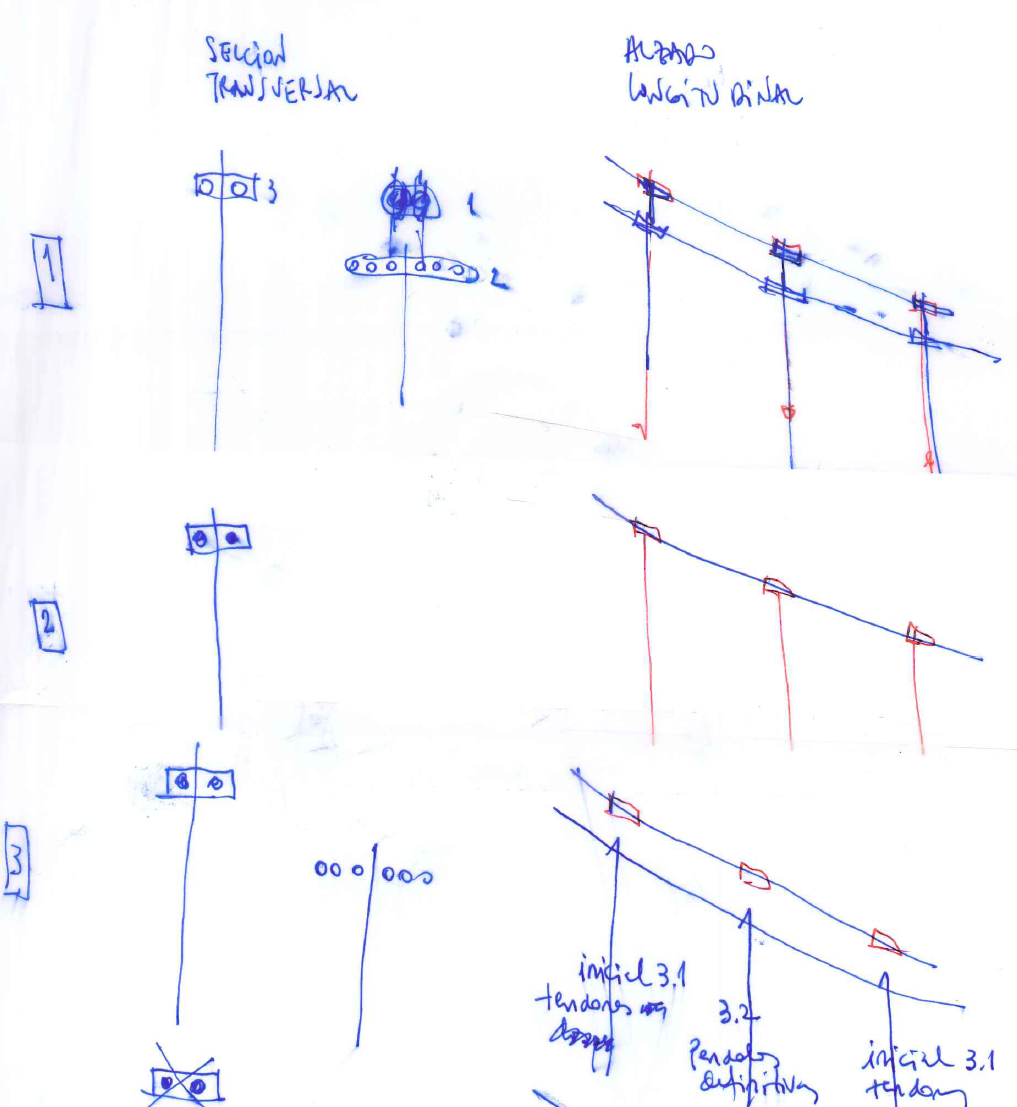 SECCION
TRANSVERSAL
ALZADO
LONGITUDINAL
3
1
2
1
2
3
inicial 3.1
tendones
3.2
Pendolas
definitivas
inicial 3.1
tendones